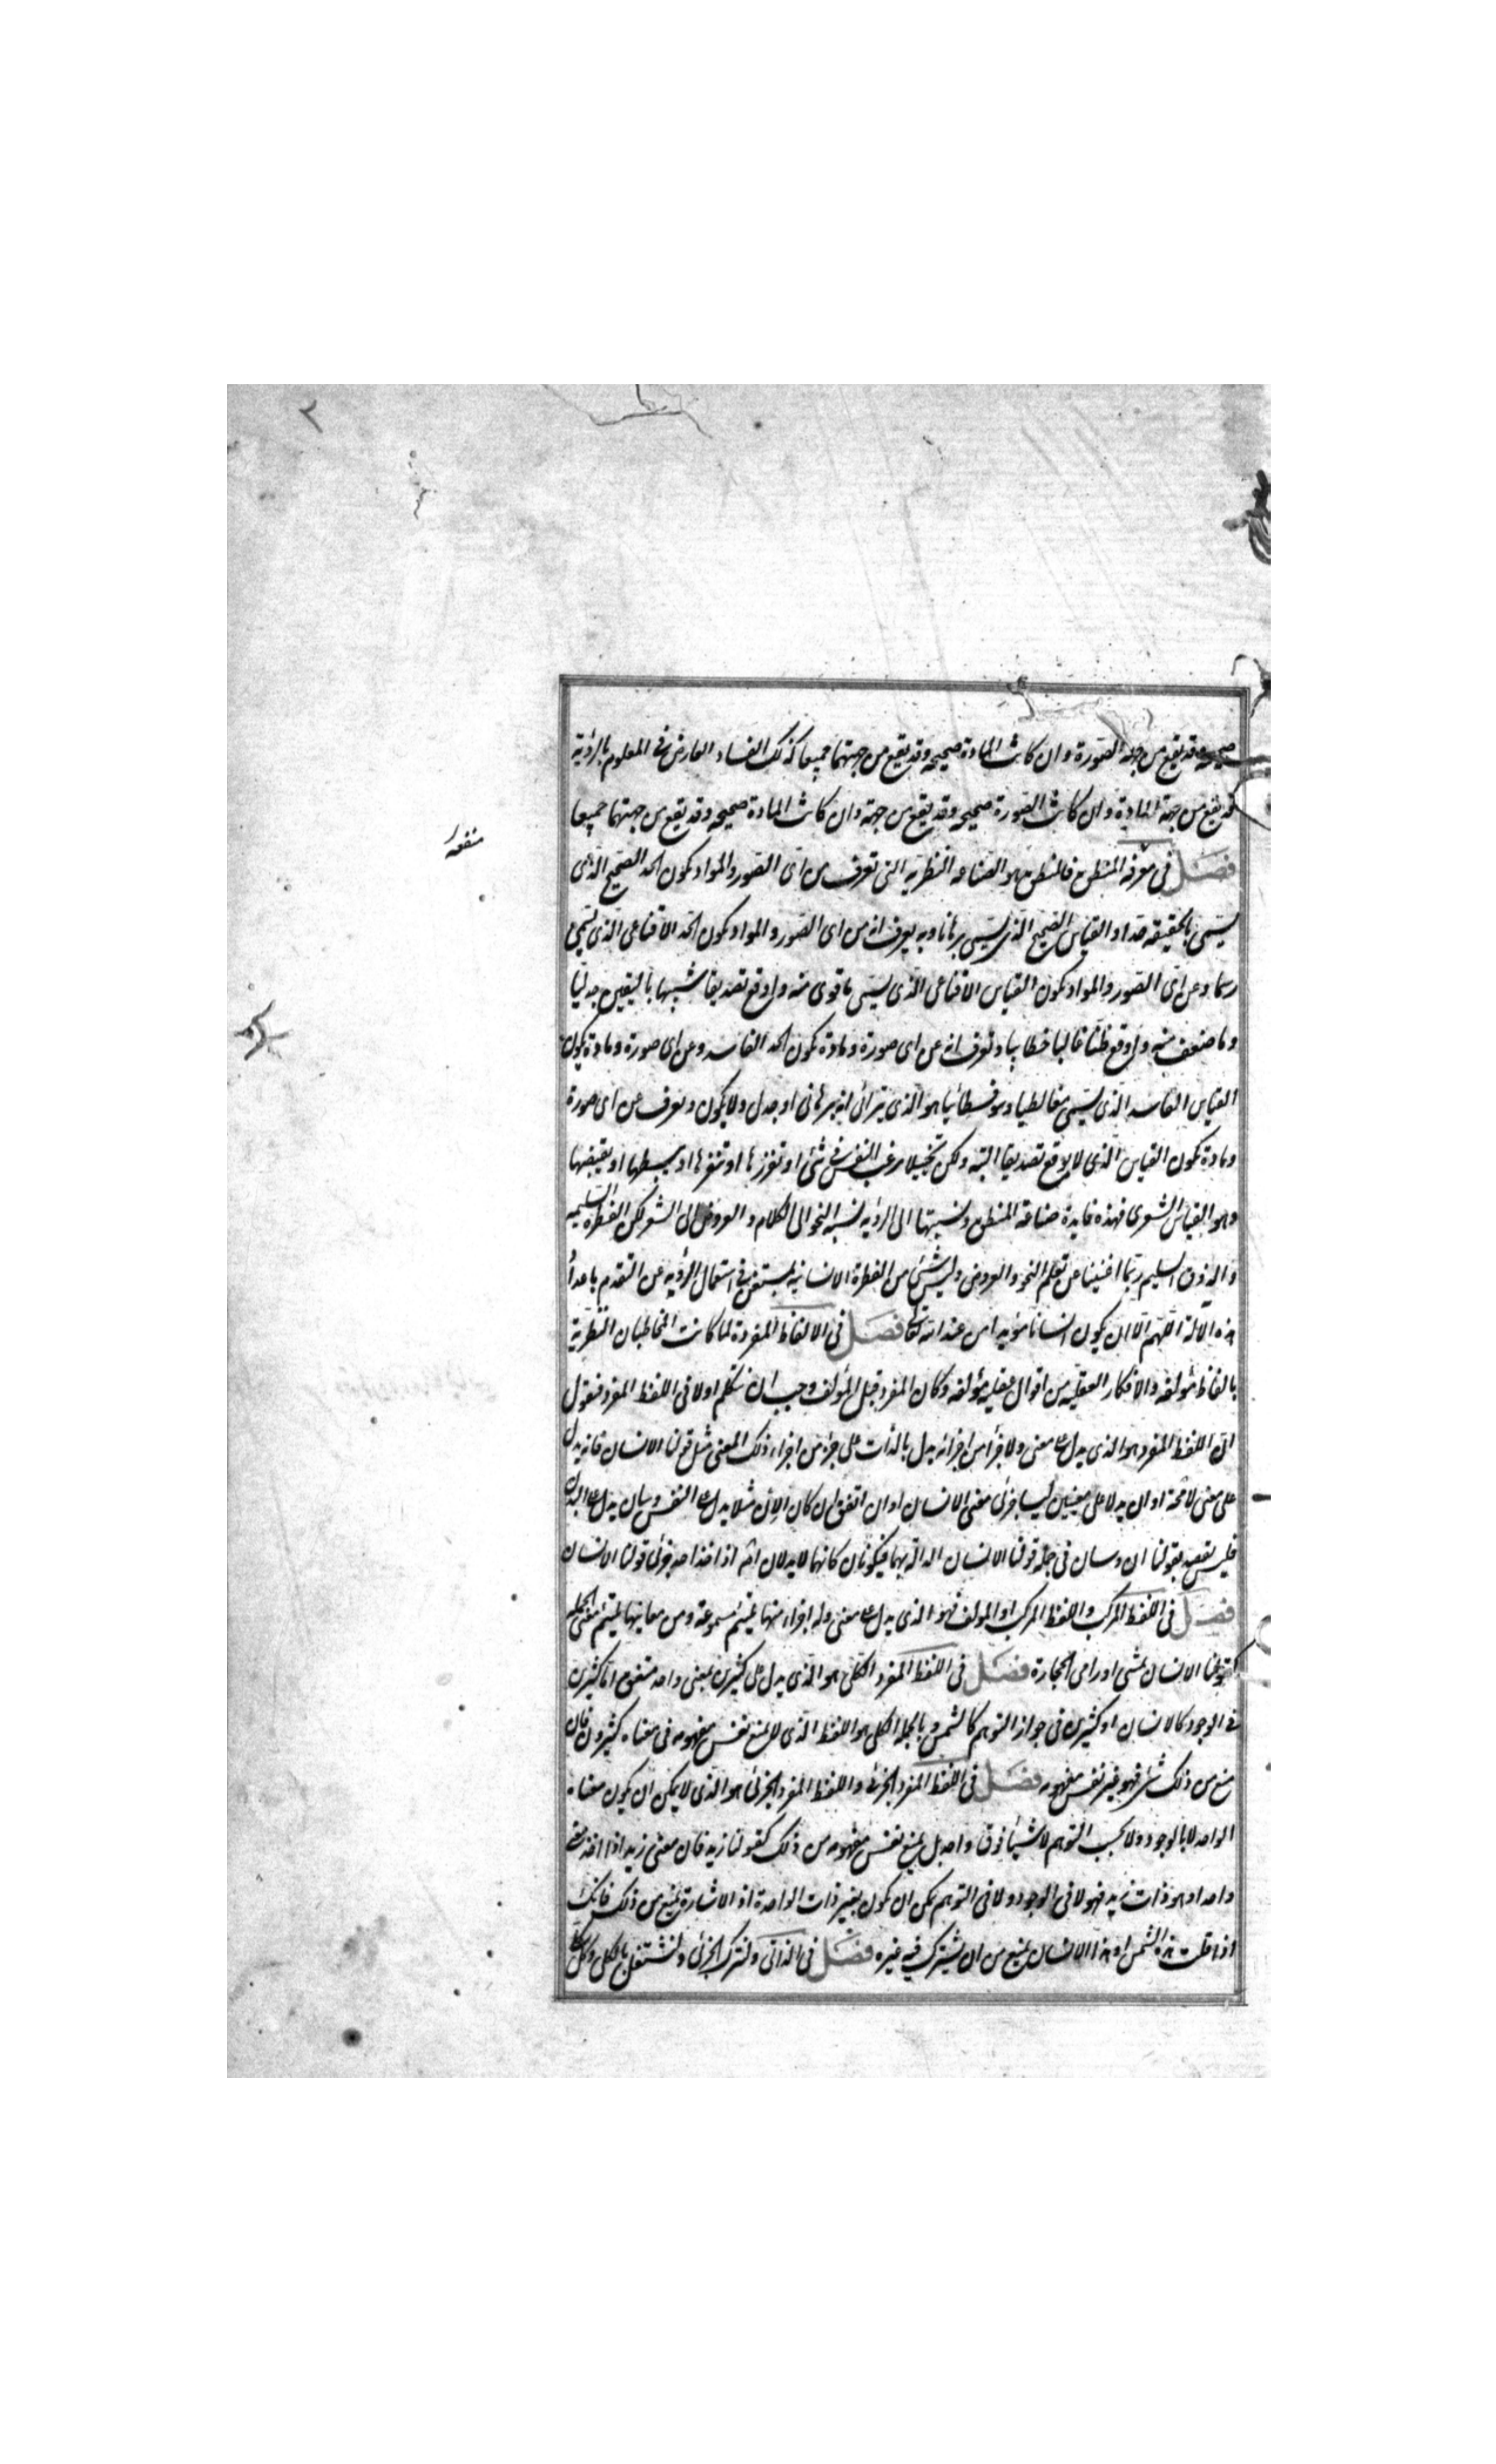 ٢
صحيحة وقد يقع من جهة الصورة وان كانت المادة صحيحه وقد يقع من جهتهما جميعا كذلك الفساد العارض فى المعلوم بالروية
قد يقع من جهة المادة وان كانت الصورة صحيحه وقد يقع من جهة وان كانت المادة صحيحه وقد يقع من جهتهما جميعا
منفعة
فصل فى معرفه المنطق فالمنطق هو الصناعه النظريه التى تعرف من اى الصور والمواد يكون الحد الصحيح الذى
يسمى بالحقيقه حدا والقياس الصحيح الذى يسمى برهانا وبه يعرف انه من اى الصور والمواد يكون الحد الاقناعى الذى يسمى
رسما وعن اى الصور والمواد يكون القياس الاقناعى الذى يسمى ما قوى منه واوقع تصديقا شبيها باليقين جدليا
وما ضعف منه واوقع ظنا غالبا خطابيا وتعرف انه عن اى صورة ومادة يكون الحد الفاسد وعن اى صورة ومادة يكون
القياس الفاسد الذى يسمى مغالطيا وسوفسطائيا هو الذى يترائى انه برهانى او جدلى ولا يكون وتعرف عن اى صورة
ومادة يكون القياس الذى لا يوقع تصديقا البته ولكن تخييلا يرغب النفس فى شئ او تنفرها او تقززها او يبسطها او يقبضها
وهو القياس الشعرى فهذه فايدة صناعة المنطق ونسبتها الى الرويه نسبه النحو الى الكلام والعروض الى الشعر لكن الفطرة السليمه
والذوق السليم ربما اغنيا عن تعلم النحو والعروض وليس شئ من الفطرة الانسانيه بمستغن فى استعمال الرويه عن التقدم باعداد
هذه الآلة اللهم الا ان يكون انسانا مؤيدا من عند الله تعالى فصل فى الالفاظ المفردة لما كانت المخاطبات النظرية
بالفاظ مؤلفه والافكار العقليه من اقوال عقليه مؤلفه وكان المفرد قبل المؤلف وجب ان نتكلم اولا فى اللفظ المفرد فنقول
ان اللفظ المفرد هو الذى يدل على معنى ولا جزأ من اجزائه يدل بالذات على جزء من اجزاء ذلك المعنى مثل قولنا الانسان فانه يدل
على معنى لا محة او ان يدلا على معنيين ليسا جزئى معنى الانسان او ان اتفق ان كان الان مثلا يدل على النفس وسان يدل على البدن
فليس نقصد بقولنا ان وسان فى جمله قولنا الانسان الدالة بهما فيكونان كانهما لا يدلان اصلا اذا اخذا جزئى قولنا الانسان
فصل فى اللفظ المركب واللفظ المركب او المولف فهو الذى يدل على معنى وله اجزاء منها يلتيم مسموعة ومن معانيها يلتيم معنى الجمله
كقولنا الانسان يمشى او رامى الحجارة فصل فى اللفظ المفرد الكلى هو الذى يدل على كثيرين بمعنى واحد متفق اما كثيرين
فى الوجود كالانسان او كثيرين فى جواز التوهم كالشمس وبالجملة الكلى هو اللفظ الذى لا يمنع نفس مفهومه فى معناه كثيرون فان
منع من ذلك شئ فهو غير نفس مفهومه فصل فى اللفظ المفرد الجزئى واللفظ المفرد الجزئى هو الذى لا يمكن ان يكون معناه
الواحد لا بالوجود ولا بحسب التوهم لاشياء فوق واحد بل يمنع نفس مفهومه من ذلك كقولنا زيد فان معنى زيد اذا اخذ معنى
واحدا هو ذات زيد فهو لا فى الوجود ولا فى التوهم يمكن ان يكون بغير ذات الواحدة اذ الاشارة يمنع من ذلك فانك
اذا قلت هذه الشمس او هذا الانسان يمنع من ان يشترك فيه غيره فصل فى الذاتى ولنترك الجزئى ولنشتغل بالكلى وكل كلى